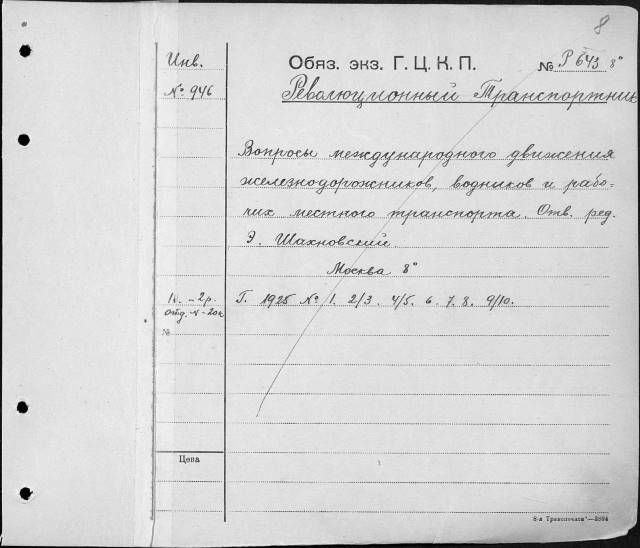 8
Инв.
№ 946
Обяз. экз. Г. Ц. К. П.
№ Р 643 8°
Революционный Транспортник
Вопросы международного движения
железнодорожников, водников и рабо=
чих местного транспорта. Отв. ред.
Э. Шахновский.
Москва 8°
1к. - 2р.
Отд. № - 20к
Г. 1925 № 1. 2/3. 4/5. 6. 7. 8. 9/10.
№
Цена
8-я Транспечати"—3894